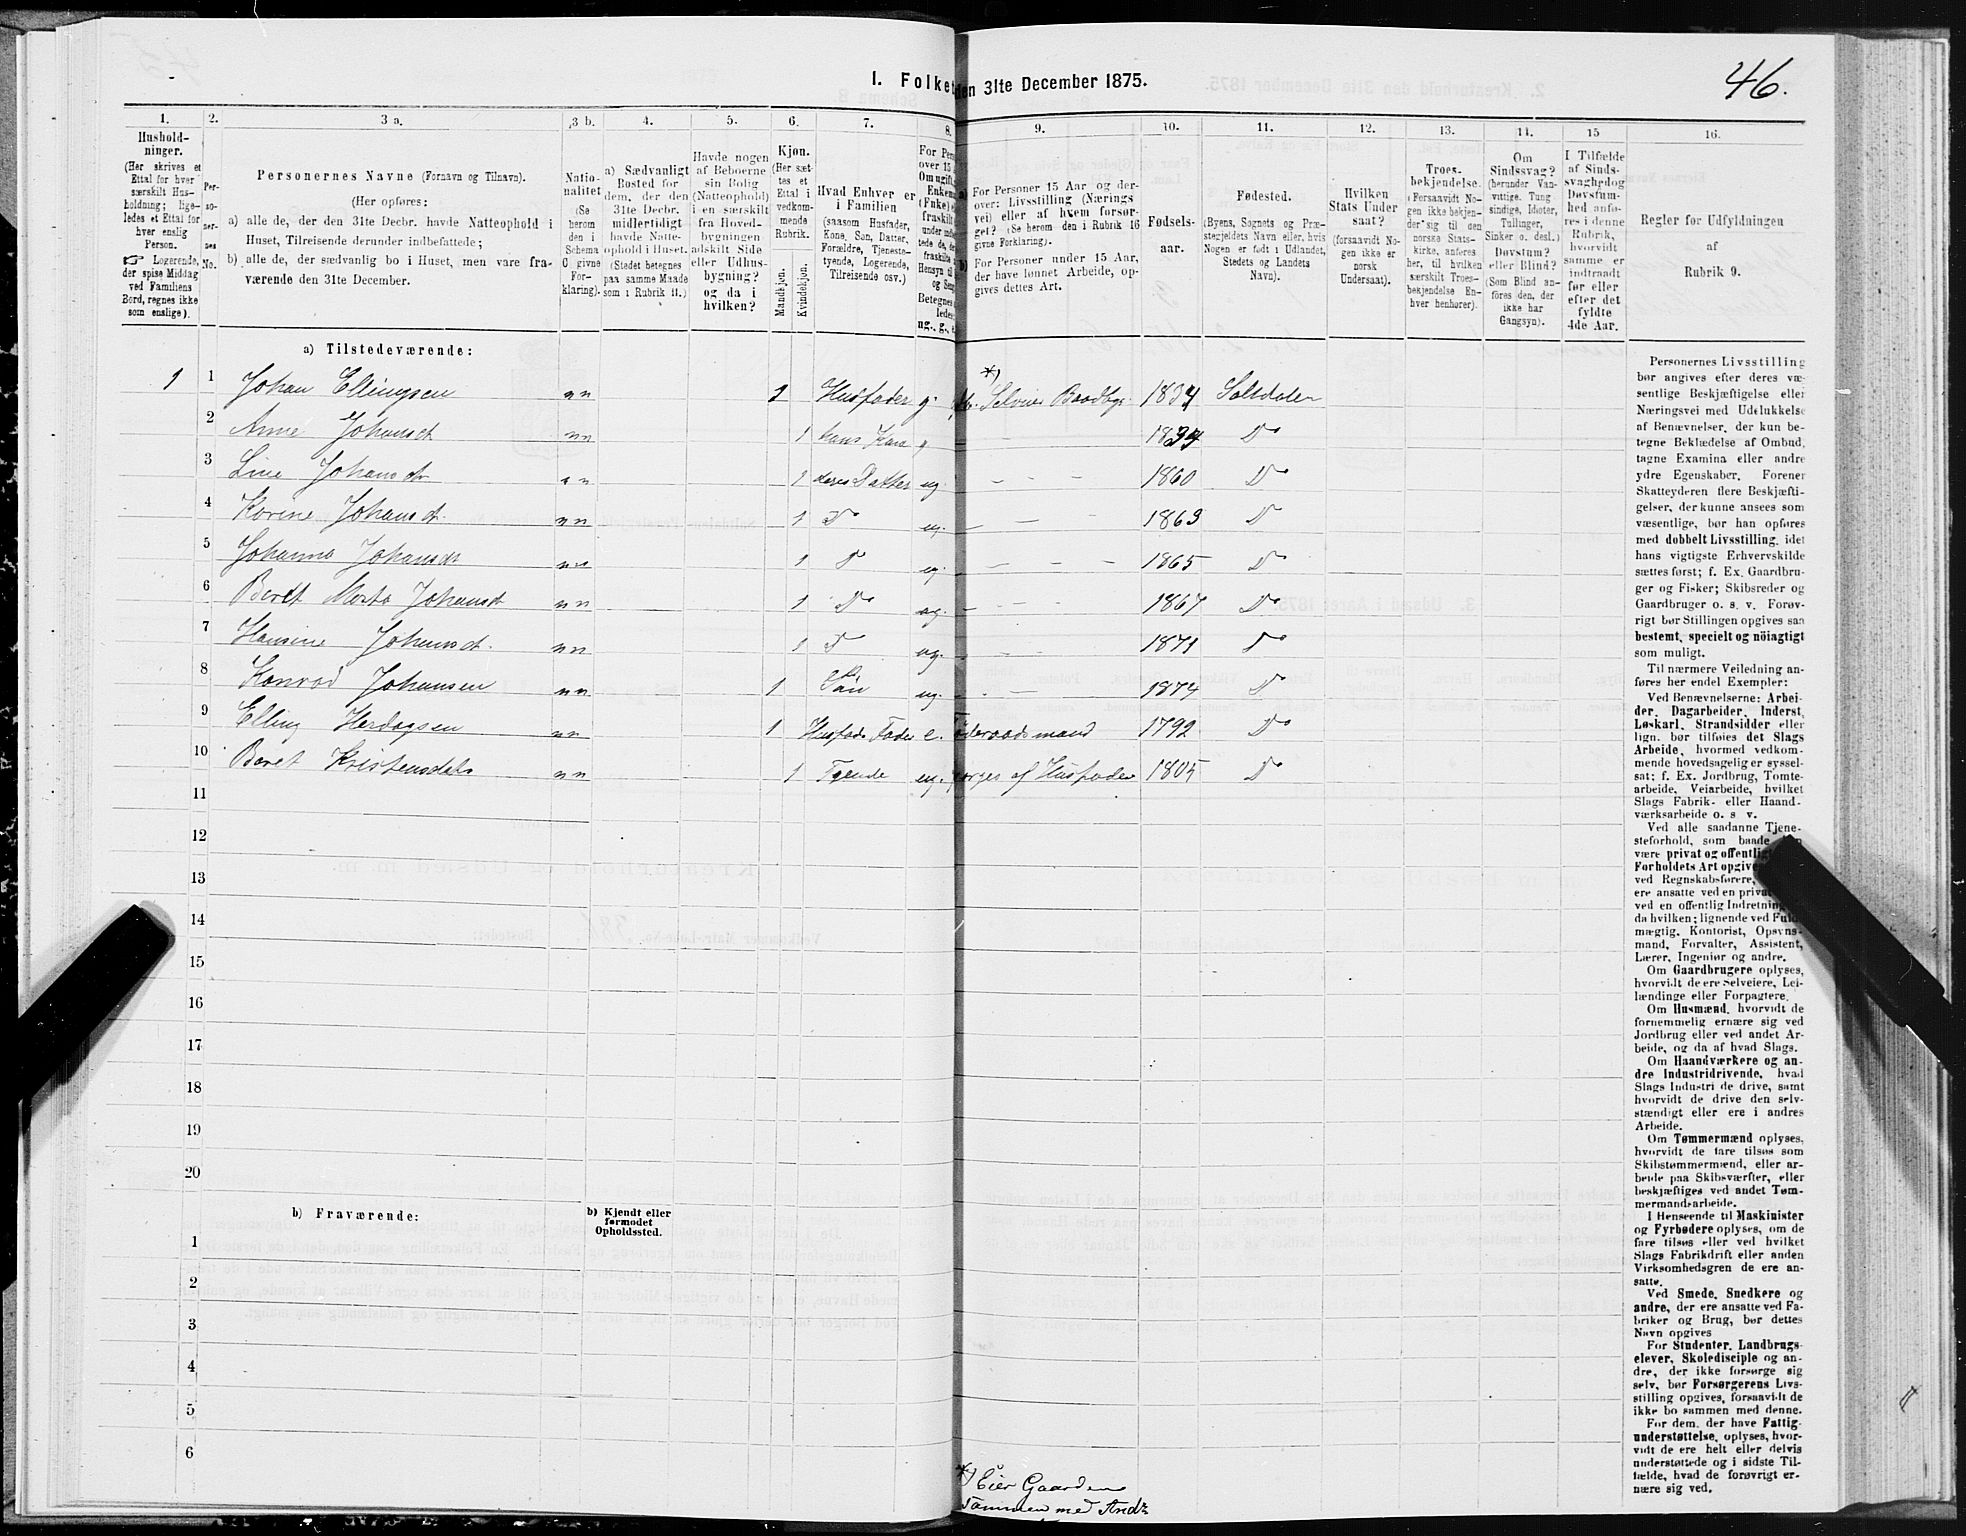 46.
I. Folket
den 31te December 1875.
1.
2.
3 a.
3 b.
4.
5.
6.
7.
8.
9.
10.
11.
12.
13.
14.
15
16.
Hushold-
ninger.
(Her skrives et
Ettal for hver
særskilt Hus-
holdning; lige-
ledes et Ettal for
hver enslig
Person.
☞ Logerende,
der spise Middag
ved Familiens
Bord, regnes ikke
som enslige).
Per-
so-
ner-
nes
No.
Personernes Navne (Fornavn og Tilnavn).
(Her opføres:
a) alle de, der den 31te Decbr. havde Natteophold i
Huset, Tilreisende derunder indbefattede;
b) alle de, der sædvanlig bo i Huset, men vare fra-
værende den 31te December.
Natio-
nalitet
(Se
herom
den i
Schema
C givne
For-
klaring).
a) Sædvanligt
Bosted for
dem, der den
31te Decbr.
midlertidigt
havde Natte-
ophold i Huset.
(Stedet betegnes
paa samme Maade
som i Rubrik 11.)
Havde nogen
af Beboerne
sin Bolig
(Natteophold)
i en særskilt
fra Hoved-
bygningen
adskilt Side
eller Udhus-
bygning?
og da i
hvilken?
Kjøn.
(Her sæt-
tes et
Ettal i
vedkom-
mende
Rubrik.
Mandkjøn.
Kvindekjøn.
Hvad Enhver er
i Familien
(saasom Husfader,
Kone, Søn, Datter,
Forældre, Tjeneste-
tyende, Logerende,
Tilreisende osv.)
For Pers
over 15 A
Om ugift,
Enkem
(Enke) e
fraskilt
Betegnes
ledes
ug., g., e
For Personer 15 Aar og der-
over: Livsstilling (Nærings
vei) eller af hvem forsør-
get? (Se herom den i Rubrik 16
givne Forklaring).
For Personer under 15 Aar,
der have lønnet Arbeide, op-
gives dettes Art.
Fødsels-
aar.
Fødested.
(Byens, Sognets og Præ-
stegjeldets Navn eller, hvis
Nogen er født i Udlandet,
Stedets og Landets
Navn).
Hvilken
Stats Under
saat?
(forsaavidt No-
gen ikke er
norsk
Undersaat).
Troes-
bekjendelse.
(Forsaavidt No-
gen ikke bekjen-
der sig til den
norske Stats-
kirke, anføres
her, til hvilken
særskilt Troes-
bekjendelse En-
hver henhører).
Om
Sindssvag?
(herunder Van-
vittige, Tung
sindige, Idioter,
Tullinger,
Sinker o. desl.)
Døvstum?
eller Blind?
(Som Blind an-
føres den, der
ikke har
Gangsyn).
I Tilfælde
af Sinds-
svaghed og
Døvstum-
hed anfø-
res i denne
Rubrik,
hvorvidt
samme er
indtraadt
før eller
efter det
fyldte
4de Aar.
Regler før Udfyldningen
af
Rubrik 9.
a) Tilstedeværende:
1 1 Johan Ellingsen nn 1 Husfader g. *) Selveier Baadbyg. 1834 Saltdalen
2 Anne Johansdt nn 1 hans Kone g - - - 1834 Do
3 Line Johansdt nn 1 deres Datter ug - - - 1860 Do
4 Korine Johansdt. nn 1 Do ug. - - - 1863 Do
5 Johanna Johansdt nn 1 Do ug. - - - 1865 Do
6 Beret Marta Johansdt nn 1 Do ug. - - - 1867 Do
7 Hansine Johansdt. nn 1 Do ug. - - - 1871 Do
8 Konrad Johansen nn 1 Søn ug. - - - 1874 Do
9 Elling Herdagsen nn 1 Husfads Fader e. Føderaadsmand 1792 Do
10 Beret Kristensdatr nn 1 Tyende ug. forsørges af Husfader 1805 Do
11
12
13
14
15
16
17
18
19
20
b) Fraværende:
b) Kjendt eller
formodet
Opholdssted.
1
2
3
4
5
6
*) Eier Gaarden
sammen med Andr
Personernes Livsstilling
bør angives efter deres væ-
sentlige Beskjæftigelse eller
Næringsvei med Udelukkelse
af Benævnelser, der kun be-
tegne Beklædelse af Ombud,
tagne Examina eller andre
ydre Egenskaber. Forener
Skatteyderen flere Beskjæfti-
gelser, der kunne ansees som
væsentlige, bør han opføres
med dobbelt Livsstilling, idet
hans vigtigste Erhvervskilde
sættes først; f. Ex. Gaardbru-
ger og Fisker; Skibsreder og
Gaardbruger o. s. v. Forøv-
rigt bør Stillingen opgives saa
bestemt, specielt og nøiagtigt
som muligt.
Til nærmere Veiledning an-
føres her endel Exempler:
Ved Benævnelserne: Arbei-
der, Dagarbeider, Inderst,
Løskarl, Strandsidder eller
lign. bør tilføies det Slags
Arbeide, hvormed vedkom-
mende hovedsagelig er syssel-
sat; f. Ex. Jordbrug, Tomte-
arbeide, Veiarbeide, hvilket
Slags Fabrik- eller Haand-
værksarbeide o. s v.
Ved alle saadanne Tjene-
steforhold, som baade
være privat og offentlig
Forholdets Art opgives
ved Regnskabsførere,
ere ansatte ved en privat
ved en offentlig Indretning
da hvilken; lignende ved Fuld-
mægtig, Kontorist, Opsyns-
mand, Forvalter, Assistent,
Lærer, Ingeniør og andre.
Om Gaardbrugere oplyses,
hvorvidt de ere Selveiere, Lei-
lændinge eller Forpagtere.
Om Husmænd, hvorvidt de
fornemmelig ernære sig ved
Jordbrug eller ved andet Ar-
beide, og da af hvad Slags.
Om Haandværkere og an-
dre Industridrivende, hvad
Slags Industri de drive, samt
hvorvidt de drive den selv-
stændigt eller ere i andres
Arbeide.
Om Tømmermænd oplyses,
hvorvidt de fare tilsøs som
Skibstømmermænd, eller ar-
beide paa Skibsværfter, eller
beskjæftiges ved andet Tøm-
mermandsarbeide.
I Henseende til Maskinister
og Fyrbødere oplyses, om de
fare tilsøs eller ved hvilket
Slags Fabrikdrift eller anden
Virksomhedsgren de ere an-
satte.
Ved Smede, Snedkere og
andre, der ere ansatte ved Fa-
briker og Brug, bør dettes
Navn opgives
For Studenter, Landbrugs-
elever, Skoledisciple og an-
dre, der ikke forsørge sig
selv, bør Forsørgerens Livs-
stilling opgives, forsaavidt de
ikke bo sammen med denne.
For dem, der have Fattig-
understøttelse, oplyses, hvor-
vidt de ere helt eller delvis
understøttede og i sidste Til-
fælde, hvad de forøvrigt er-
nære sig ved.